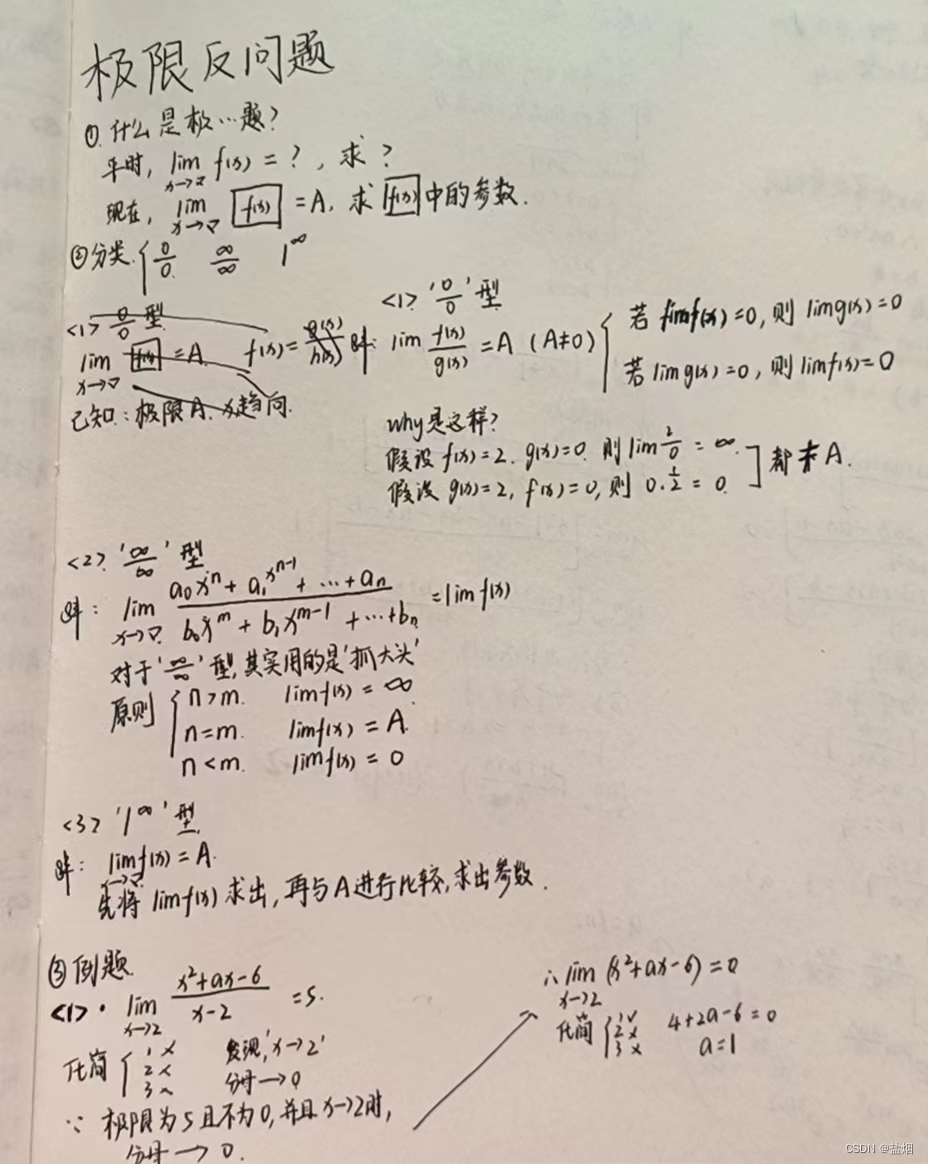 极限反问题
①.什么是极…题?
平时, lim x→▽ f(x) = ? , 求 ?
现在, lim x→▽ f(x) = A, 求 f(x) 中的参数.
②分类. { 0/0 ∞/∞ 1^∞
<1> 0/0 型
lim x→▽ f(x) = A. f(x) = g(x)/h(x)
已知: 极限A. x趋向.
<1> '0/0' 型
lim f(x)/g(x) = A (A≠0) { 若 limf(x)=0, 则 limg(x)=0
若 limg(x)=0, 则 limf(x)=0
why是这样?
假设 f(x)=2. g(x)=0. 则 lim 2/0 = ∞.
假设 g(x)=2, f(x)=0, 则 0·1/2 = 0. ] 都≠A.
<2> '∞/∞' 型
lim x→▽ (a₀xⁿ + a₁xⁿ⁻¹ + … + aₙ)/(b₀xᵐ + b₁xᵐ⁻¹ + … + bₙ) = lim f(x)
对于'∞/∞'型, 其实用的是'抓大头'
原则 { n>m. limf(x) = ∞
n=m. limf(x) = A.
n<m. limf(x) = 0
<3> '1^∞' 型
lim x→▽ f(x) = A.
先将 limf(x) 求出, 再与A进行比较, 求出参数.
③例题.
<1>· lim x→2 (x²+ax-6)/(x-2) = 5.
化简 { 1 × 2 × 3 × 发现, 'x→2'
分母→0
∵ 极限为5且不为0, 并且x→2时,
分母→0.
∴ lim x→2 (x²+ax-6) = 0
化简 { 1√ 2× 3× 4+2a-6=0
a=1
CSDN @盐烟